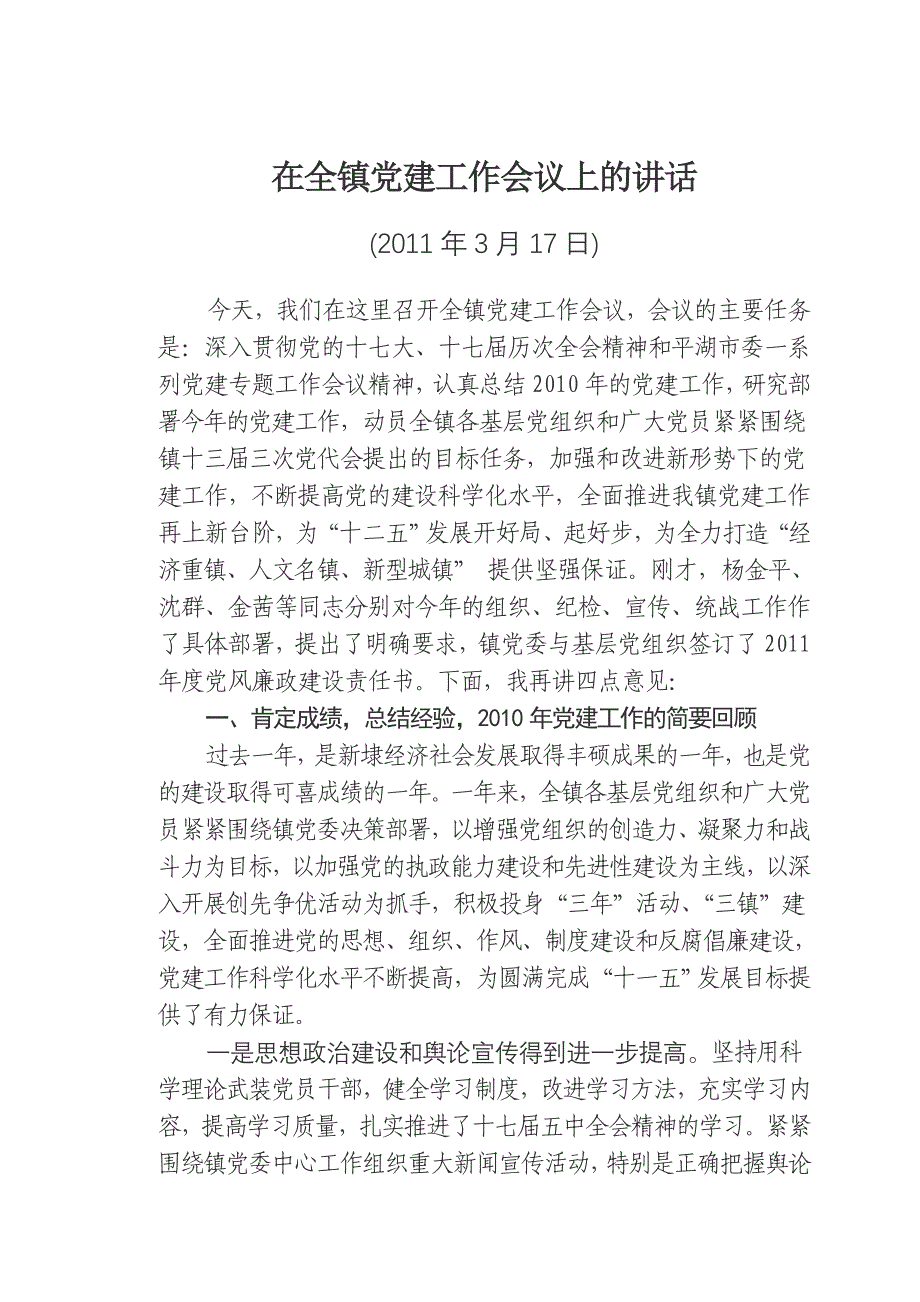 在全镇党建工作会议上的讲话
(2011 年 3 月 17 日)
今天，我们在这里召开全镇党建工作会议，会议的主要任务
是：深入贯彻党的十七大、十七届历次全会精神和平湖市委一系
列党建专题工作会议精神，认真总结 2010 年的党建工作，研究部
署今年的党建工作，动员全镇各基层党组织和广大党员紧紧围绕
镇十三届三次党代会提出的目标任务，加强和改进新形势下的党
建工作，不断提高党的建设科学化水平，全面推进我镇党建工作
再上新台阶，为“十二五”发展开好局、起好步，为全力打造“经
济重镇、人文名镇、新型城镇” 提供坚强保证。刚才，杨金平、
沈群、金茜等同志分别对今年的组织、纪检、宣传、统战工作作
了具体部署，提出了明确要求，镇党委与基层党组织签订了 2011
年度党风廉政建设责任书。下面，我再讲四点意见：
一、肯定成绩，总结经验，2010 年党建工作的简要回顾
过去一年，是新埭经济社会发展取得丰硕成果的一年，也是党
的建设取得可喜成绩的一年。一年来，全镇各基层党组织和广大党
员紧紧围绕镇党委决策部署，以增强党组织的创造力、凝聚力和战
斗力为目标，以加强党的执政能力建设和先进性建设为主线，以深
入开展创先争优活动为抓手，积极投身“三年”活动、“三镇”建
设，全面推进党的思想、组织、作风、制度建设和反腐倡廉建设，
党建工作科学化水平不断提高，为圆满完成“十一五”发展目标提
供了有力保证。
一是思想政治建设和舆论宣传得到进一步提高。坚持用科
学理论武装党员干部，健全学习制度，改进学习方法，充实学习内
容，提高学习质量，扎实推进了十七届五中全会精神的学习。紧紧
围绕镇党委中心工作组织重大新闻宣传活动，特别是正确把握舆论